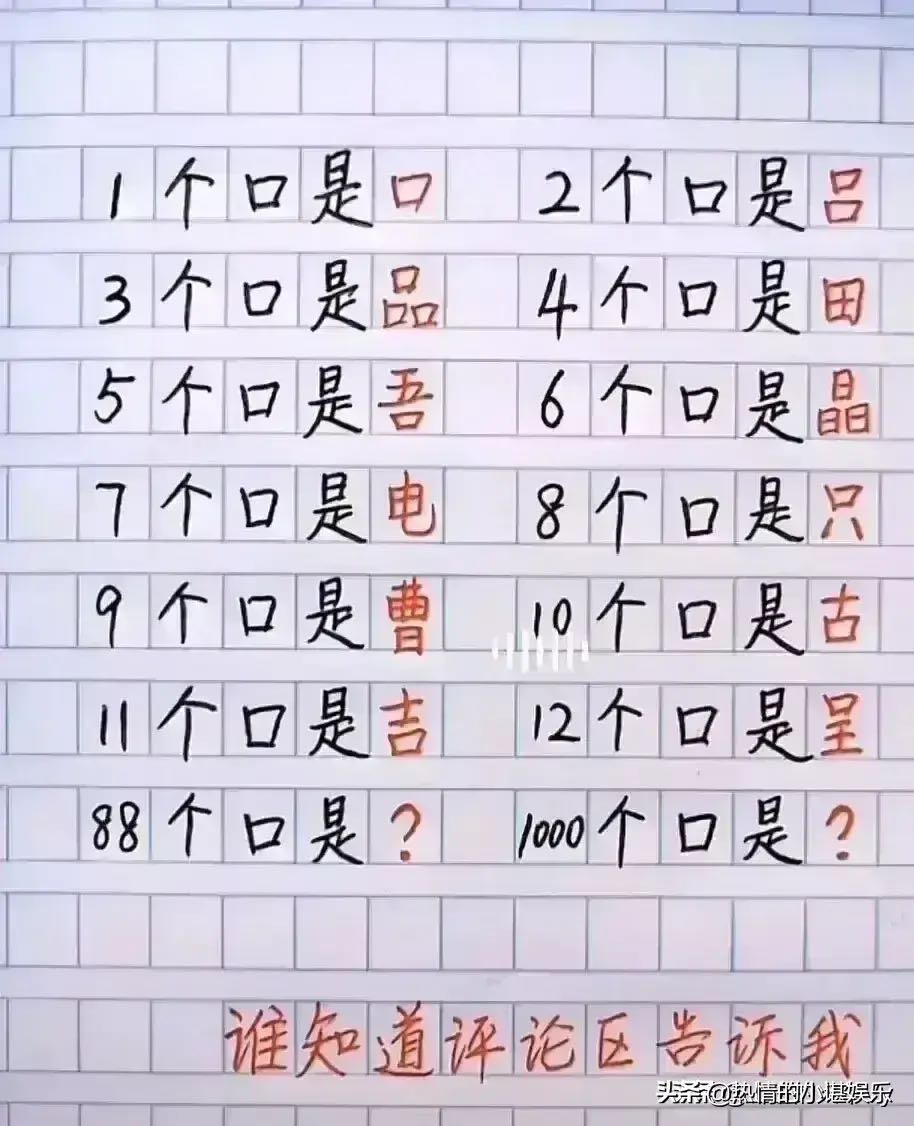 1个口是口 2个口是吕
3个口是品 4个口是田
5个口是吾 6个口是晶
7个口是电 8个口是只
9个口是曹 10个口是古
11个口是吉 12个口是呈
88个口是? 1000个口是?
谁知道评论区告诉我
头条@热情的小堪娱乐